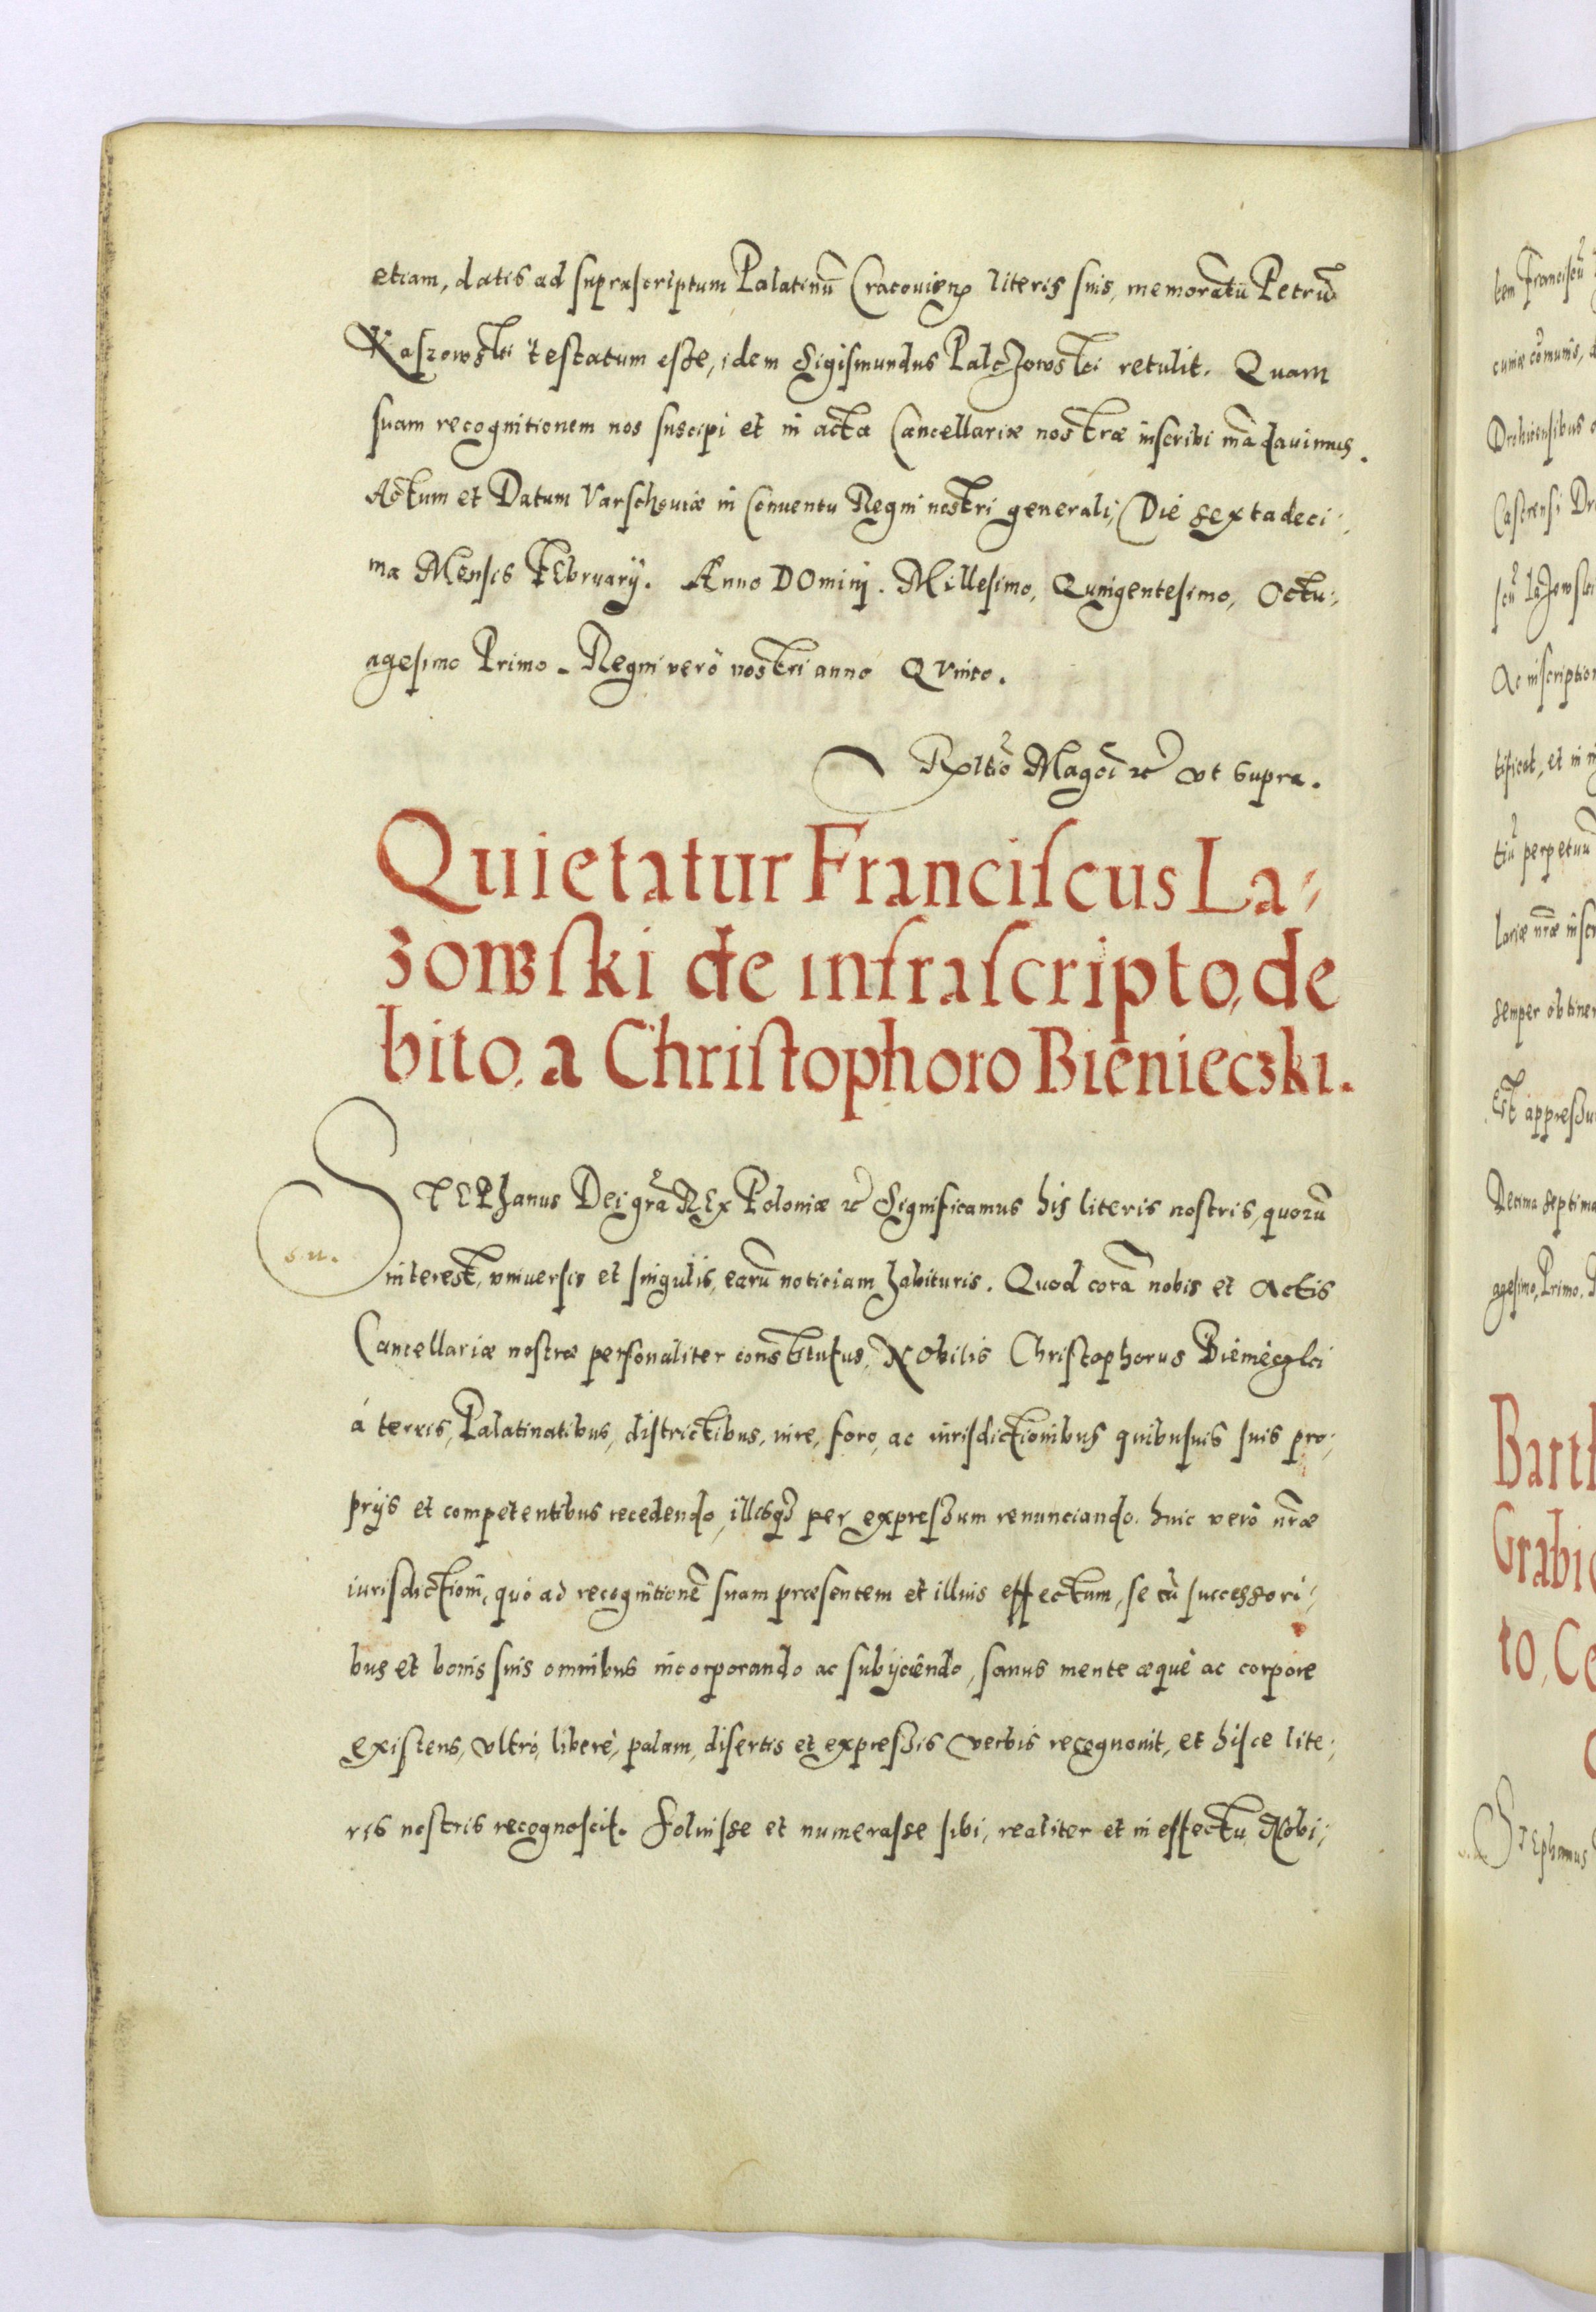 etiam, datis ad supra scriptum Palatinū Cracovien̄ literis suis, memoratū Petrū
Kaszowski testatum esse, idem Sigismundus Palczowski retulit. Quam
suam recognitionem nos suscipi et in acta Cancellariæ nostræ inscribi mādavimus.
Actum et Datum Varschoviæ in Conventu Regni nostri generali, Die sextadeci:
ma Mensis FEbruarÿ. Anno DOmini. Millesimo, Quingentesimo, Octu:
agesimo Primo. Regni verò nostri anno QVinto.
Rƚtio Mag̃ci ꝛc̃ vt supra.
Quietatur Franciſcus La⸗
zowſki de infraſcripto, de
bito, a Chriſtophoro Bienieczki.
STEPhanus Dei grã REx Poloniæ ꝛc̃ Significamus his literis nostris, quorū
interest, vniversis et singulis, earū noticiam habituris. Quod corā nobis et Actis
Cancellariæ nostræ personaliter constitutus, NObilis Christophorus Bienieczki
á terris, Palatinatibus, districtibus, iure, foro, ac iurisdictionibus quibusuis suis pro:
prijs et competentibus recedendo, illisq̃ per expressum renunciando. huic verò nr̃æ
iurisdictioni, quò ad recognitionē suam præsentem et illius effectum, se cū successori:
bus et bonis suis omnibus incorporando ac subijciendo, sanus mente æquè ac corpore
existens, vltrò, liberè, palam, disertis et expressis verbis recognovit, et hisce lite:
ris nostris recognoscit. Solvisse et numerasse sibi, realiter et in effectu, NObi:
tem Franciscū
Castrensi
Ac inscription
tificat, et in
tiū perpetuū
lariæ nr̃æ inscr
semper obtiner
Est appressu
Decima septima
agesimo, Primo.
Barth
Grabi
to, Ce
STEphanus